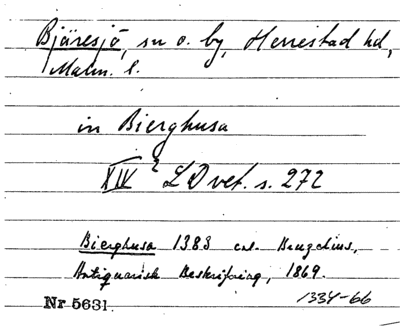 Bjäresjö, sn o. by, Herrestad hd,
Malm. l.
in Bierghusa
XIV 2 LD vet. s. 272
Bierghusa 1383 enl. Bruzelius,
Antiquarisk Beskrifning, 1869.
Nr 5631. 1334-66